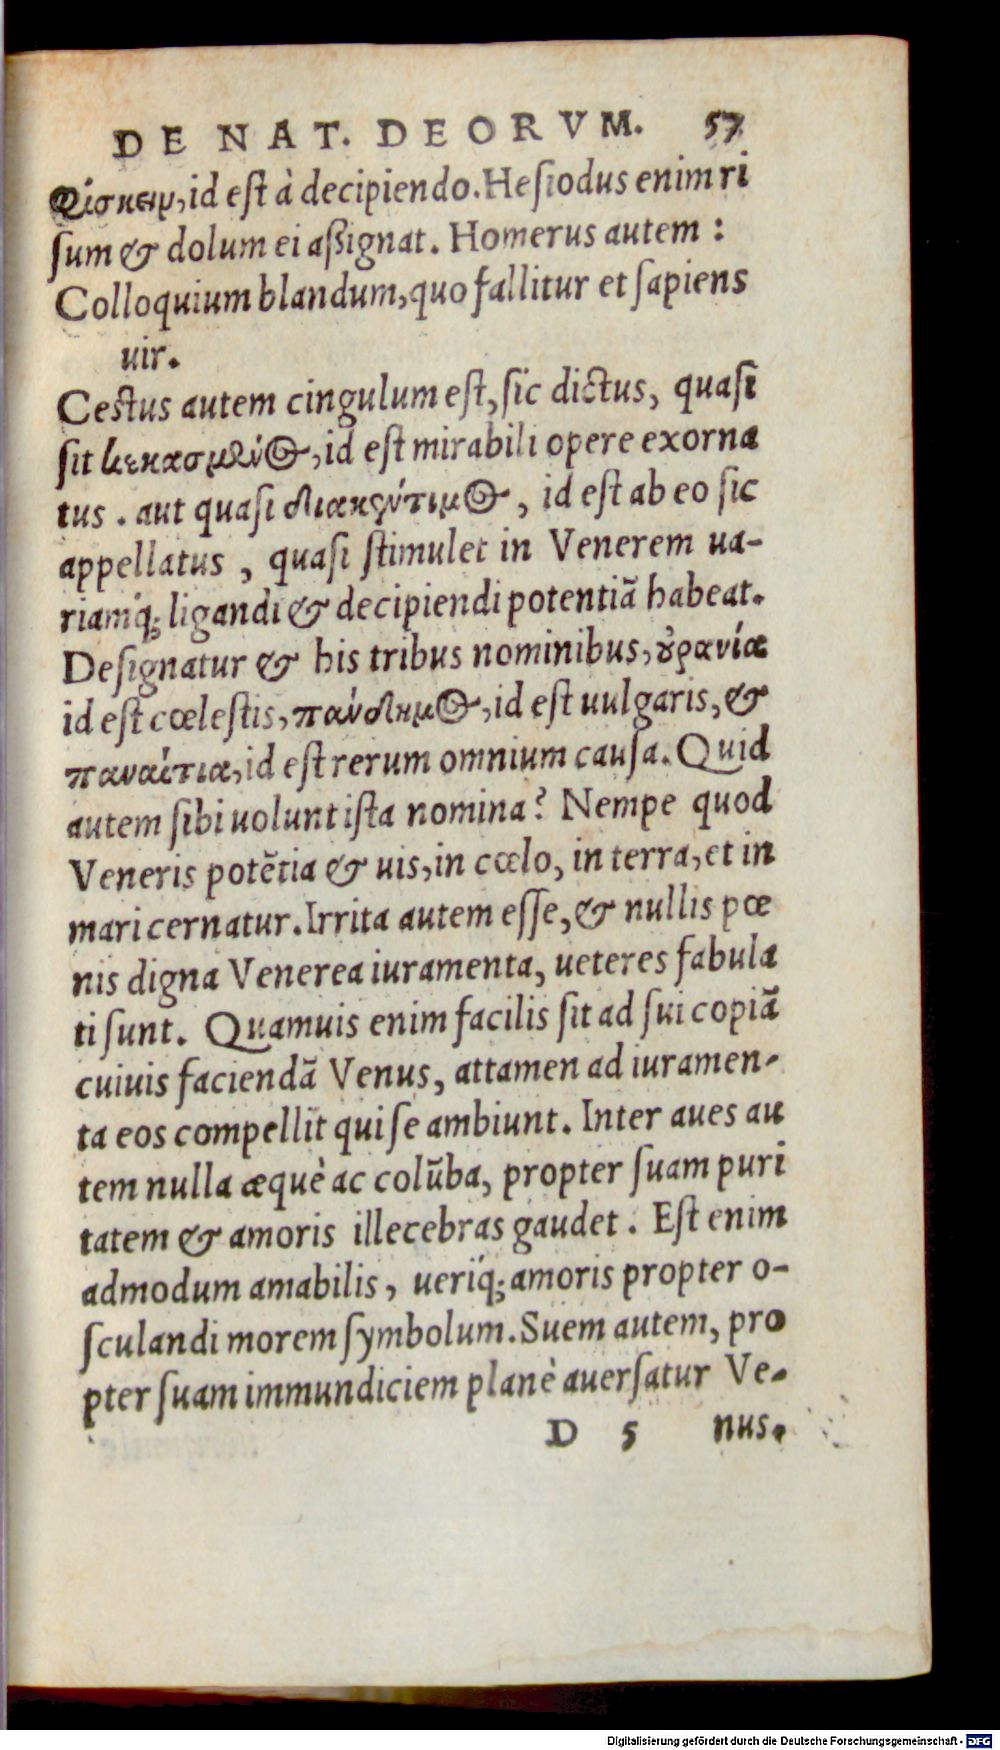 DE NAT. DEORVM. 57
φίσκειν, id est à decipiendo. Hesiodus enim ri
sum & dolum ei aßignat. Homerus autem :
Colloquium blandum, quo fallitur et sapiens
uir.
Cestus autem cingulum est, sic dictus, quasi
sit κεκασμένος, id est mirabili opere exorna
tus. aut quasi διακεντιμος, id est ab eo sic
appellatus, quasi stimulet in Venerem ua-
riamq́; ligandi & decipiendi potentiã habeat.
Designatur & his tribus nominibus, ȣ̓ρανία
id est cœlestis, πανδημος, id est uulgaris, &
παναίτια, id est rerum omnium causa. Quid
autem sibi uolunt ista nomina? Nempe quod
Veneris potẽtia & uis, in cœlo, in terra, et in
mari cernatur. Irrita autem esse, & nullis pœ
nis digna Venerea iuramenta, ueteres fabula
ti sunt. Quamuis enim facilis sit ad sui copiã
cuiuis faciendã Venus, attamen ad iuramen-
ta eos compellit qui se ambiunt. Inter aues au
tem nulla æquè ac colũba, propter suam puri
tatem & amoris illecebras gaudet. Est enim
admodum amabilis, ueriq́; amoris propter o-
sculandi morem symbolum. Suem autem, pro
pter suam immundiciem planè auersatur Ve-
D 5 nus.
Digitalisierung gefördert durch die Deutsche Forschungsgemeinschaft - DFG